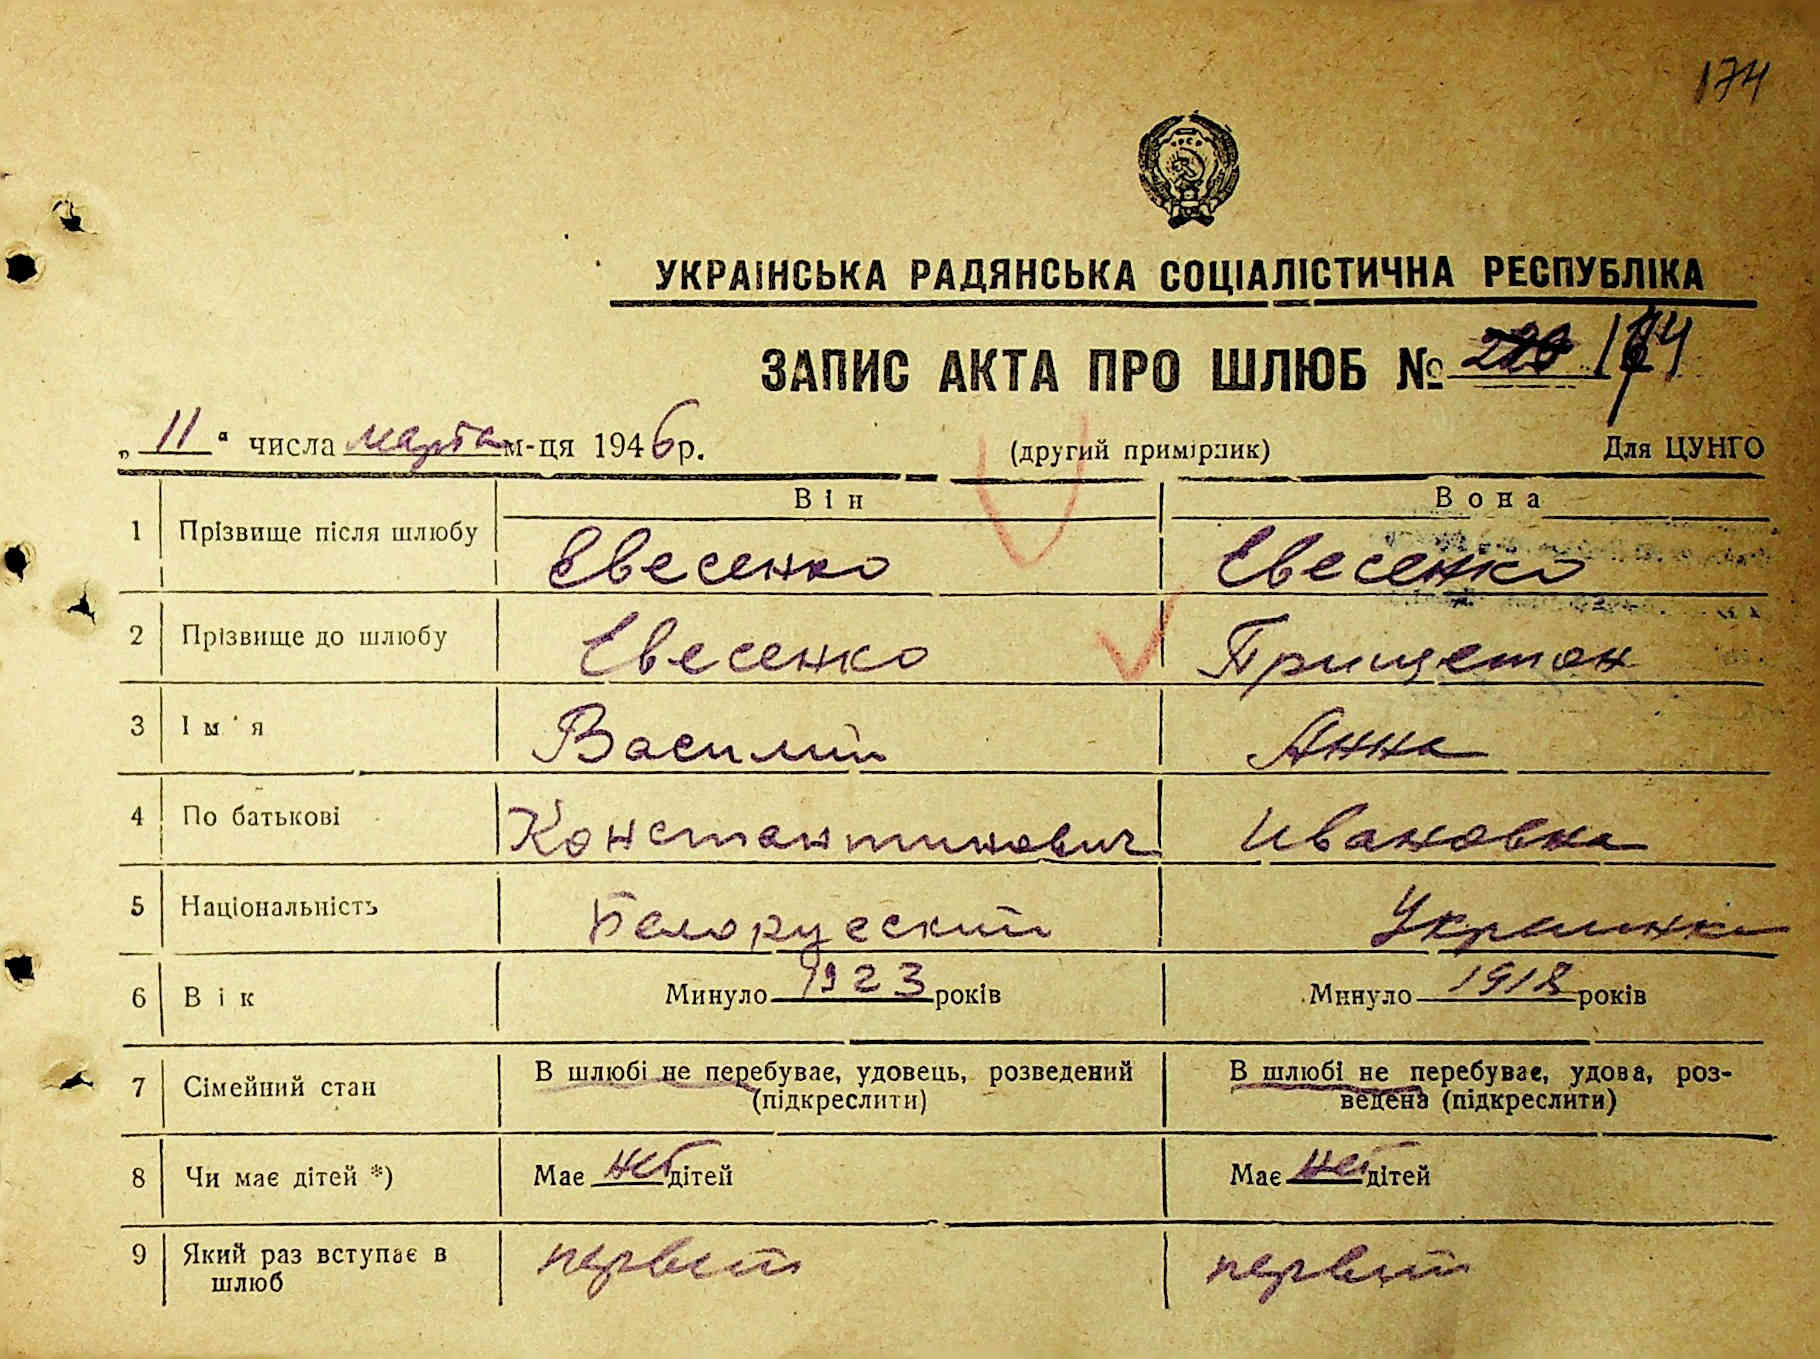 174
УКРАЇНСЬКА РАДЯНСЬКА СОЦІАЛІСТИЧНА РЕСПУБЛІКА
ЗАПИС АКТА ПРО ШЛЮБ № 174
„ 11 “ числа марта м-ця 1946 р. (другий примірник) Для ЦУНГО
Він Вона
1 Прізвище після шлюбу Евесенко Евесенко
2 Прізвище до шлюбу Евесенко Прищетон
3 Ім'я Василий Анна
4 По батькові Константинович Ивановна
5 Національність Белорусский Украинка
6 Вік Минуло 1923 років Минуло 1918 років
7 Сімейний стан В шлюбі не перебуває, удовець, розведений (підкреслити) В шлюбі не перебуває, удова, роз-
ведена (підкреслити)
8 Чи має дітей *) Має нет дітей Має нет дітей
9 Який раз вступає в шлюб первый первый